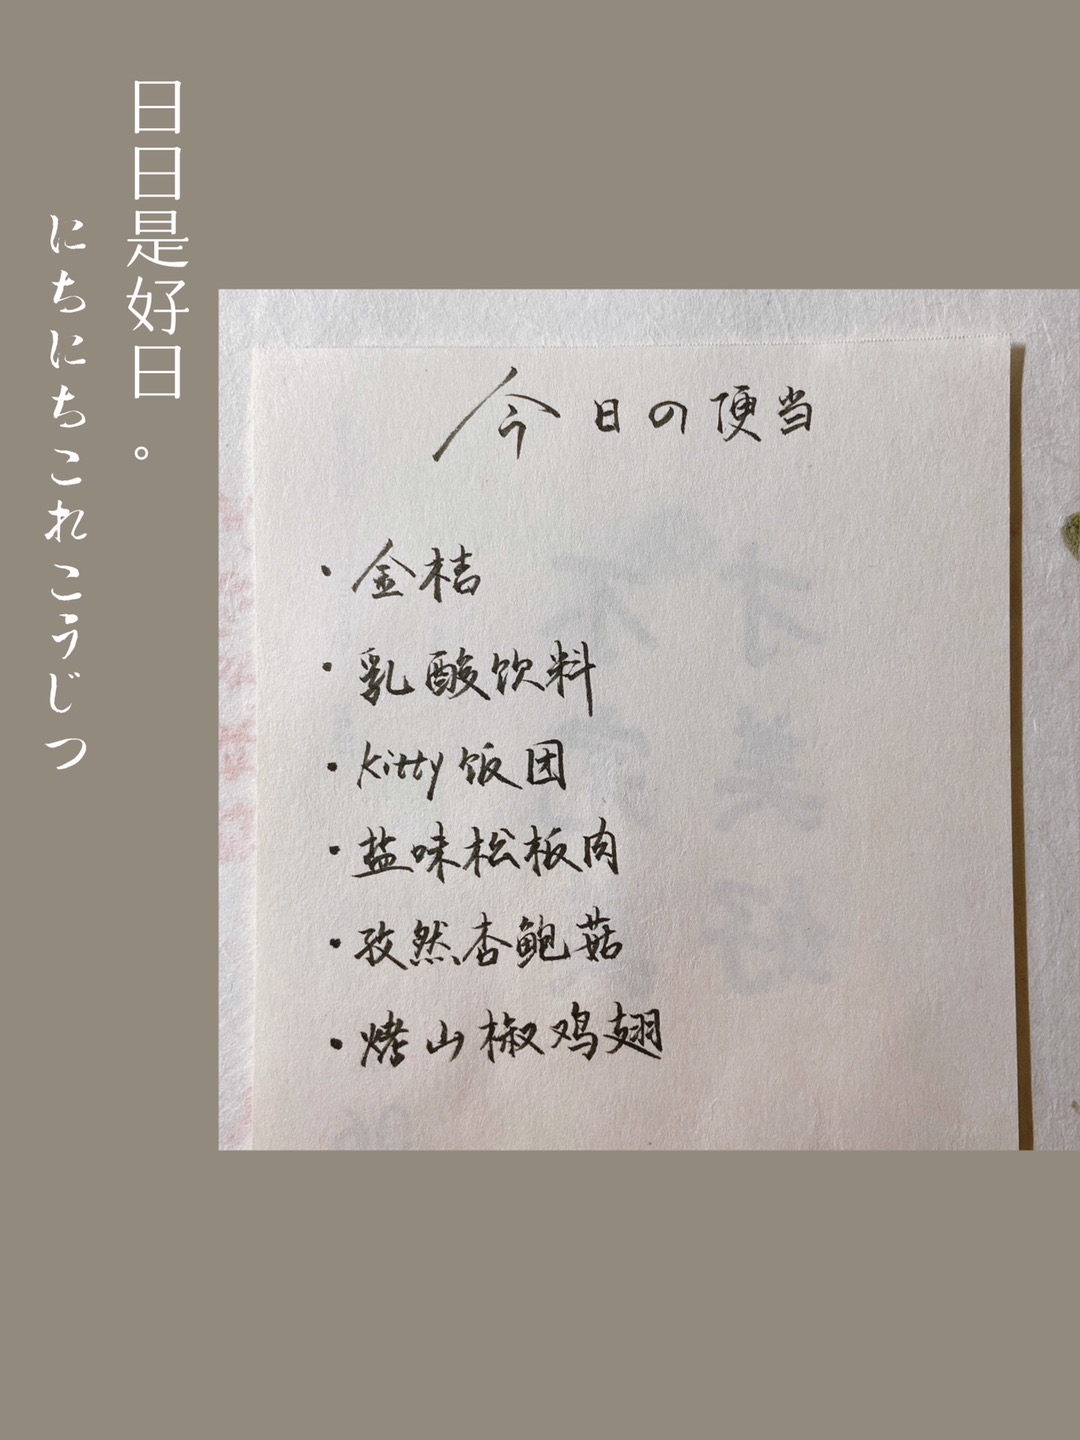 日日是好日。
にちにちこれこうじつ
今日の便当
·金桔
·乳酸饮料
·Kitty饭团
·盐味松板肉
·孜然杏鲍菇
·烤山椒鸡翅